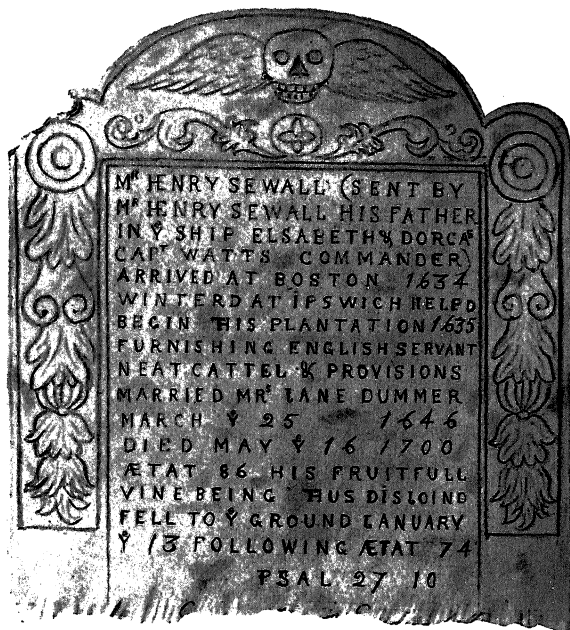 Mʳ HENRY SEWALL (SENT BY
Mʳ HENRY SEWALL HIS FATHER
IN Yᵉ SHIP ELSABETH & DORCAˢ
CAPᵗ WATTS COMMANDER)
ARRIVED AT BOSTON 1634
WINTERD AT IPSWICH HELPD
BEGIN THIS PLANTATION 1635
FURNISHING ENGLISH SERVANTˢ
NEAT CATTEL & PROVISIONS
MARRIED MRˢ IANE DUMMER
MARCH Yᵉ 25 1646
DIED MAY Yᵉ 16 1700
ÆTAT 86 HIS FRUITFULL
VINE BEING THUS DISIOIND
FELL TO Yᵉ GROUND IANUARY
Yᵉ 13 FOLLOWING ÆTAT 74
PSAL 27 10